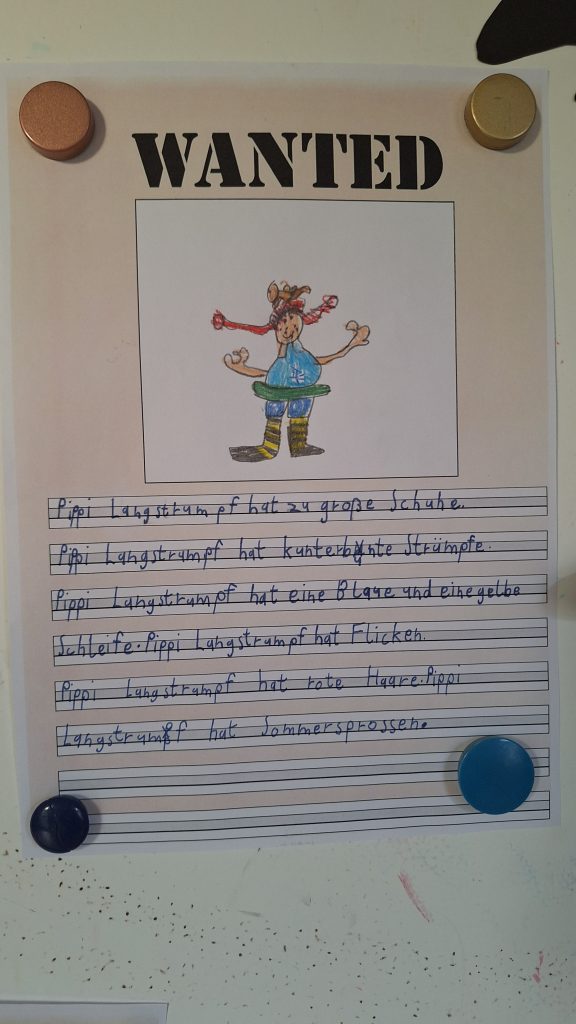 WANTED
Pippi Langstrumpf hat zu große Schuhe.
Pippi Langstrumpf hat kunterbunte Strümpfe.
Pippi Langstrumpf hat eine Blaue und eine gelbe
Schleife. Pippi Langstrumpf hat Flicken.
Pippi Langstrumpf hat rote Haare. Pippi
Langstrumpf hat Sommersprossen.